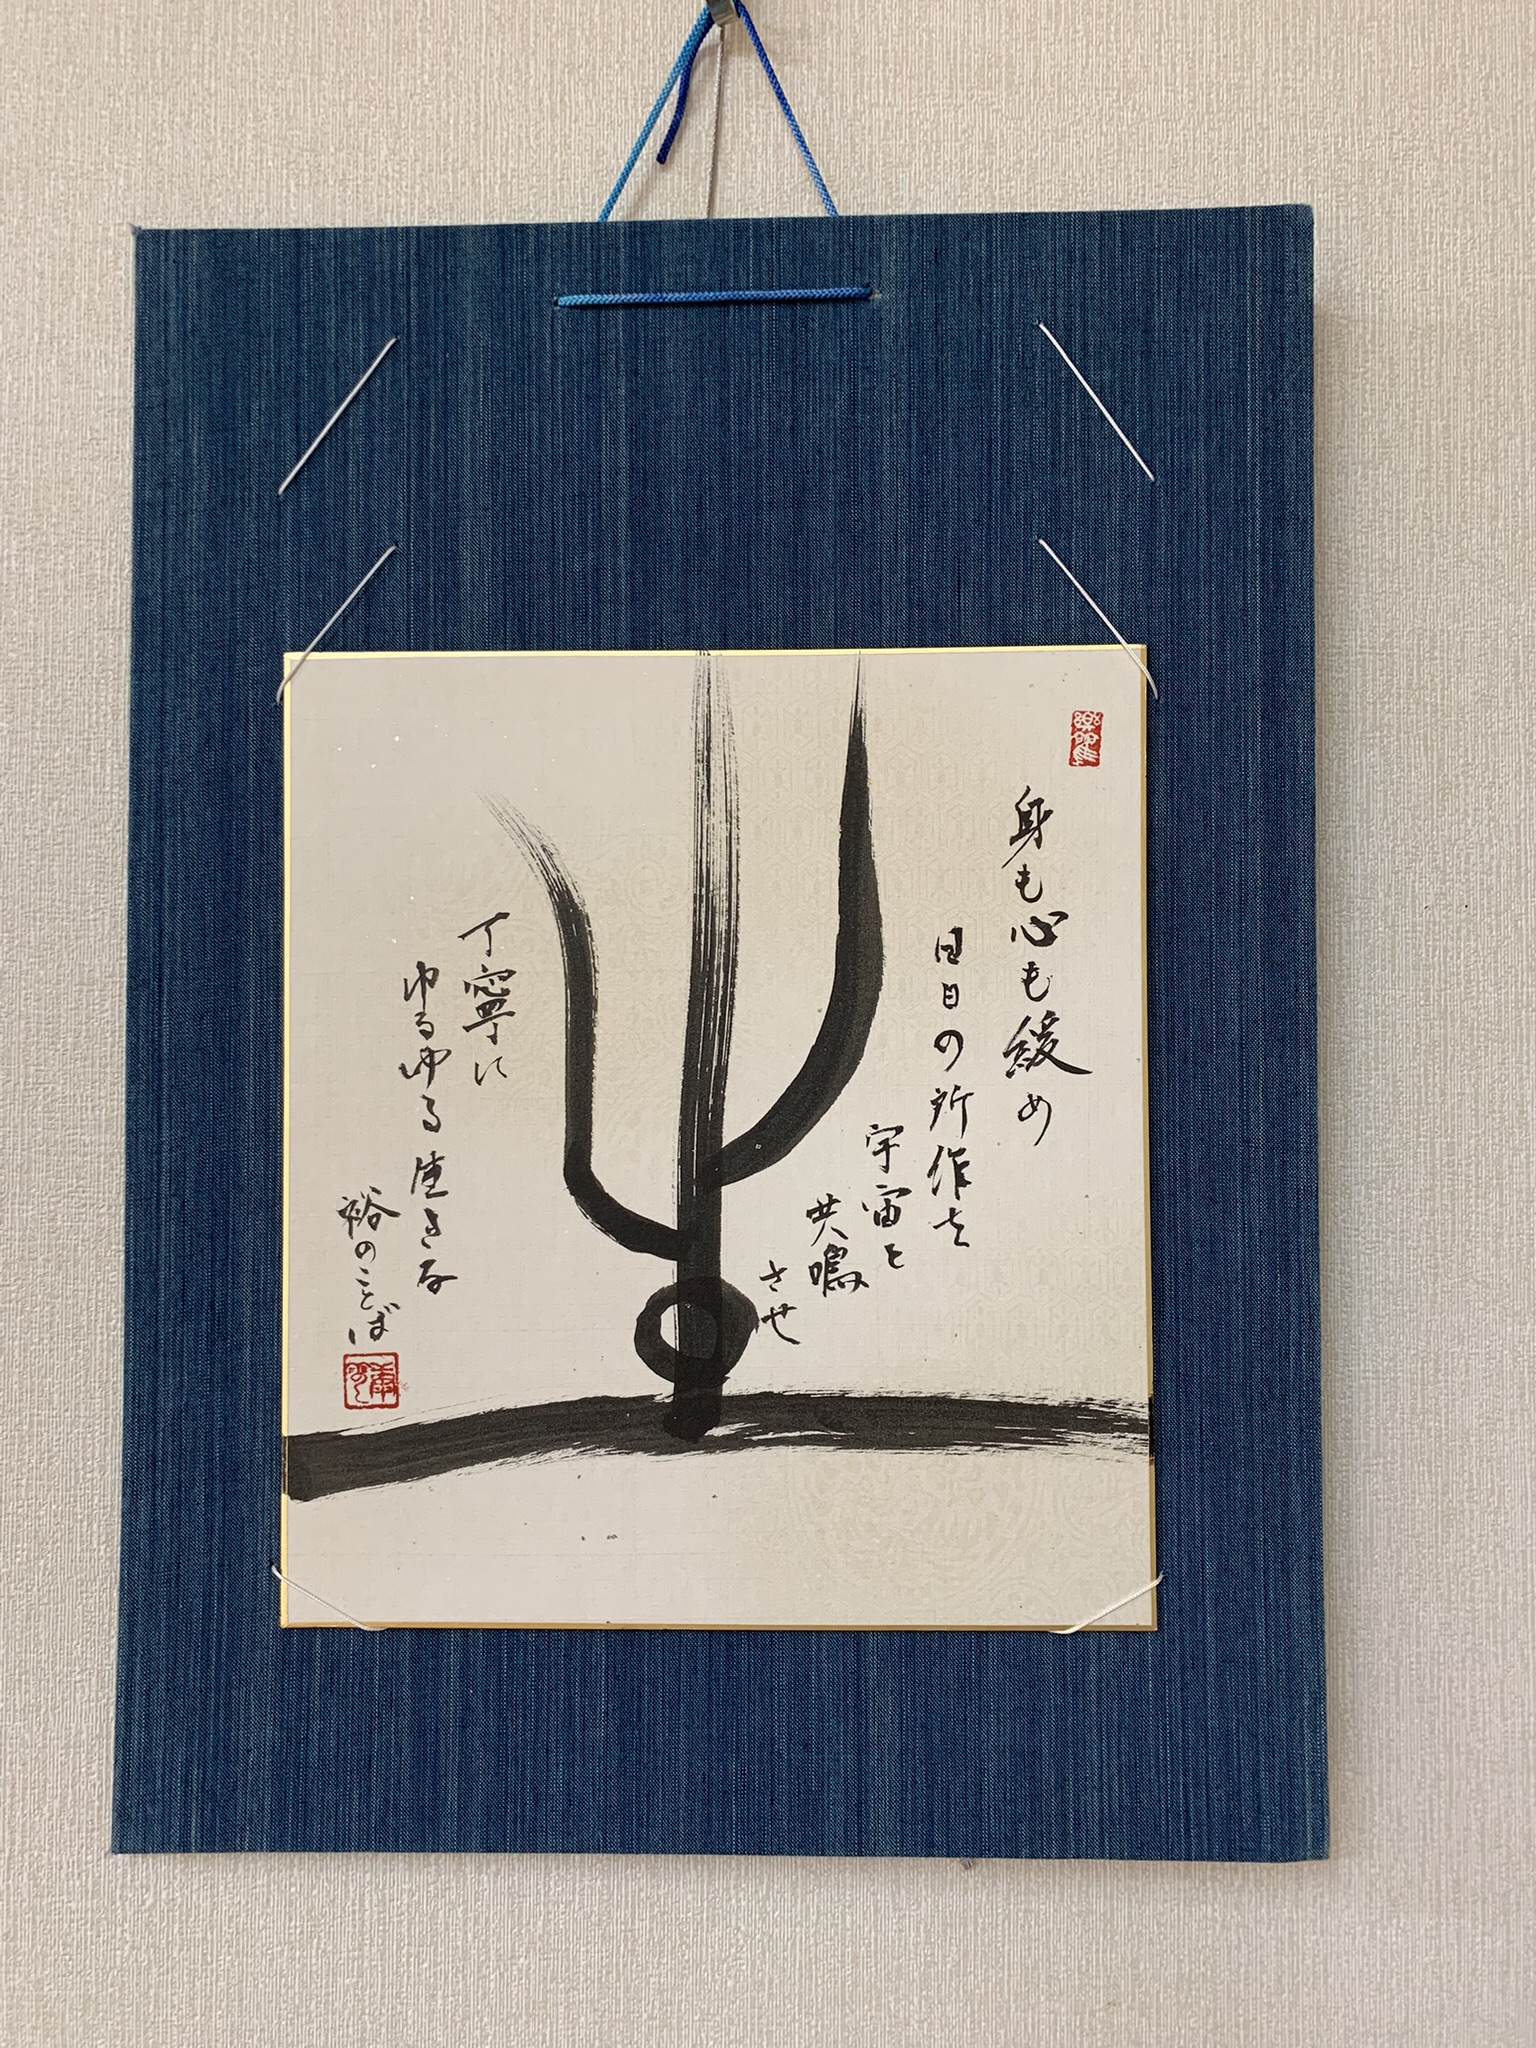 身も心も緩め
日日の所作を
宇宙と
共鳴
させ
丁寧に
ゆるゆる生きる
裕のことば